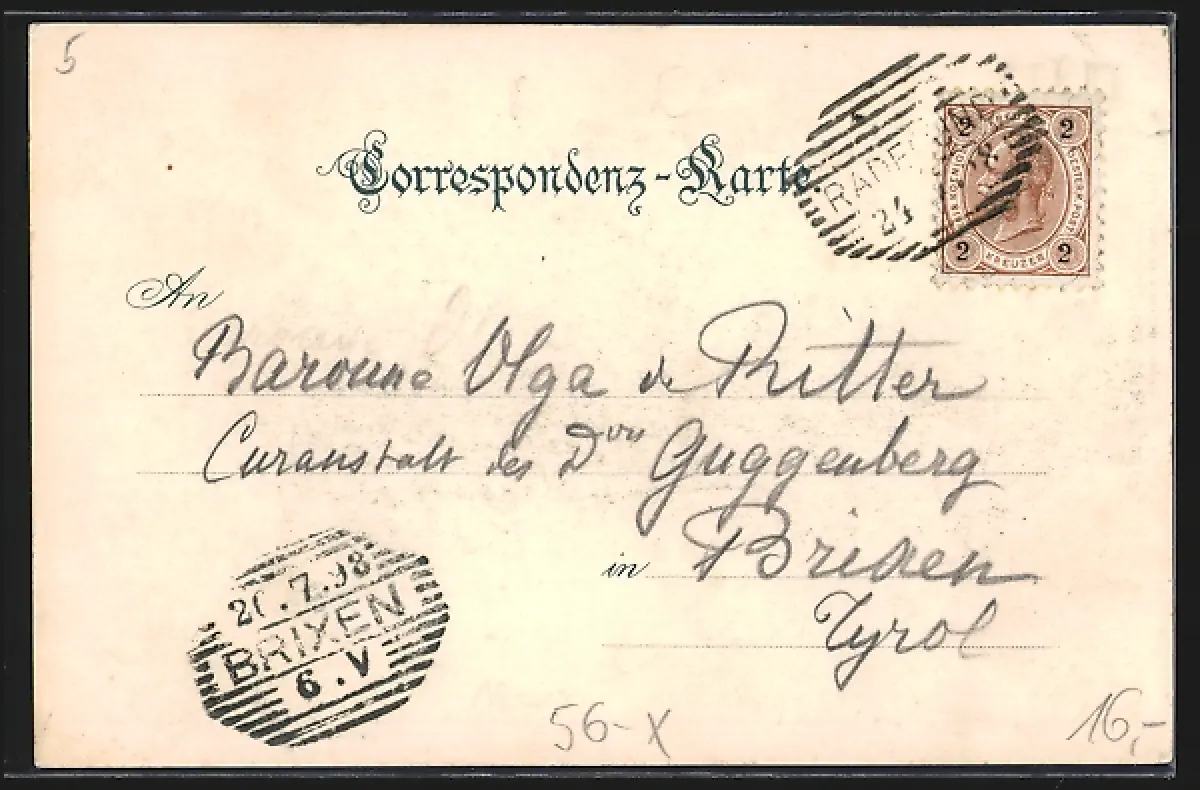 5
Correspondenz-Karte.
RADEGUND
24
2 2
2 KREUZER 2
An
Baronne Olga de Ritter
Curanstalt des Drvon Guggenberg
in Brixen
Tyrol
7.98
BRIXEN
6.V
56-X
16,-